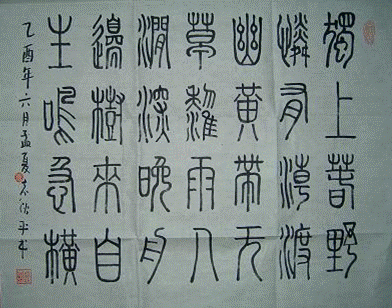 獨憐幽草澗邊生
上有黃鸝深樹鳴
春潮帶雨晚來急
野渡无人舟自橫
乙酉年六月孟夏